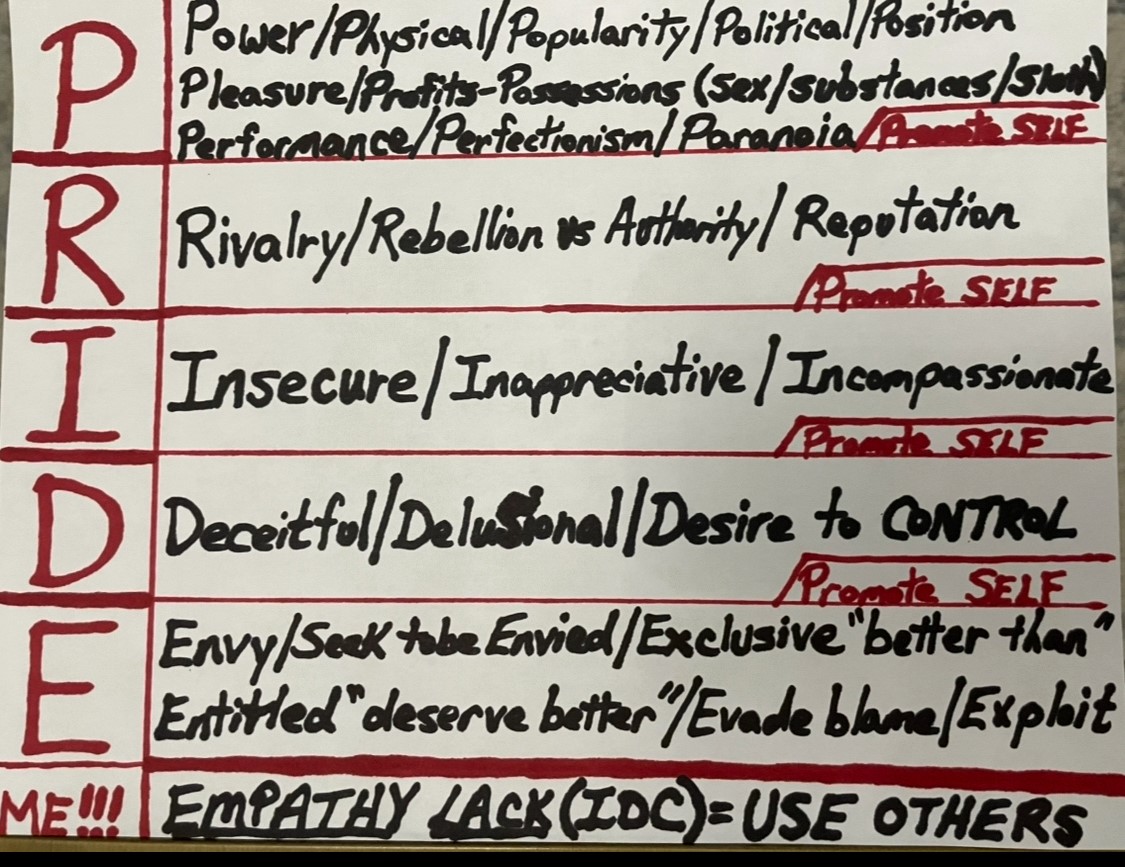 P
Power/Physical/Popularity/Political/Position
Pleasure/Profits-Possessions (sex/substances/Sloth)
Performance/Perfectionism/Paranoia/Promote SELF
R
Rivalry/Rebellion vs Authority/Reputation
/Promote SELF
I
Insecure/Inappreciative/Incompassionate
/Promote SELF
D
Deceitful/Delusional/Desire to CONTROL
/Promote SELF
E
Envy/Seek to be Envied/Exclusive "better than"
Entitled "deserve better"/Evade blame/Exploit
ME!!! EMPATHY LACK (IDC) = USE OTHERS